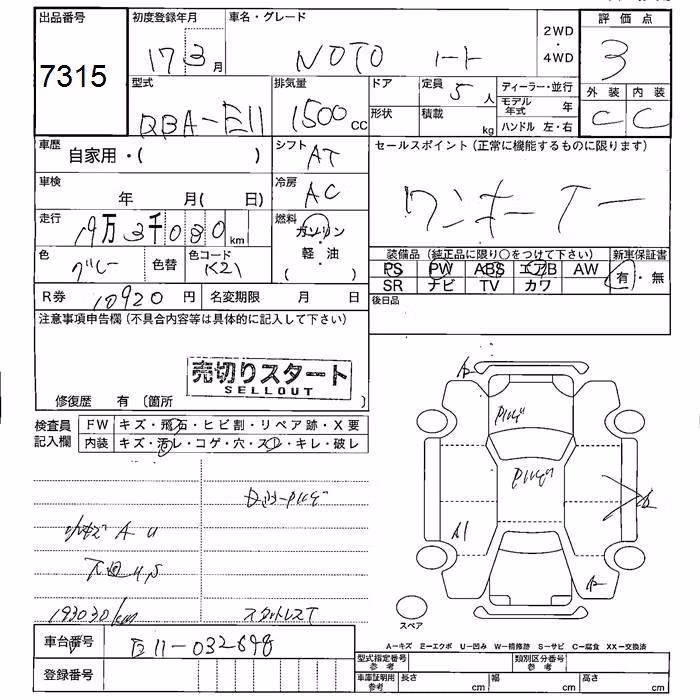 出品番号 初度登録年月 車名・グレード 評価点
7315 17 3月 NOTO 2WD・4WD 3
型式 排気量 ドア 定員 ディーラー・並行 外装 内装
1500cc 5人 モデル年式 年 C C
形状 積載 kg ハンドル 左・右
車歴 自家用・( ) シフト AT セールスポイント(正常に機能するものに限ります)
車検 年 月( 日) 冷房 AC ワンオーナー
走行 19万3千030km 燃料 ガソリン・軽油 ( )
色 グレー 色替 色コード 装備品(純正品に限り○をつけて下さい) 新車保証書
PS PW ABS エアB AW 有・無
SR ナビ TV カワ
R券 10920円 名変期限 月 日 後日品
注意事項申告欄(不具合内容等は具体的に記入して下さい)
売切りスタート
SELLOUT
修復歴 有 〔箇所
検査員記入欄 FW キズ・飛石・ヒビ割・リペア跡・X要
内装 キズ・汚レ・コゲ・穴・スレ・キレ・破レ
A U
下廻U,S
193030km スタットレスT
A
A1
A
スペア
A=キズ E=エクボ U=凹み W=補修跡 S=サビ C=腐食 XX=交換済
車台番号 E11-032698
登録番号
型式指定番号 参考 類別区分番号 参考
車庫証明用 参考 長さ cm 幅 cm 高さ cm